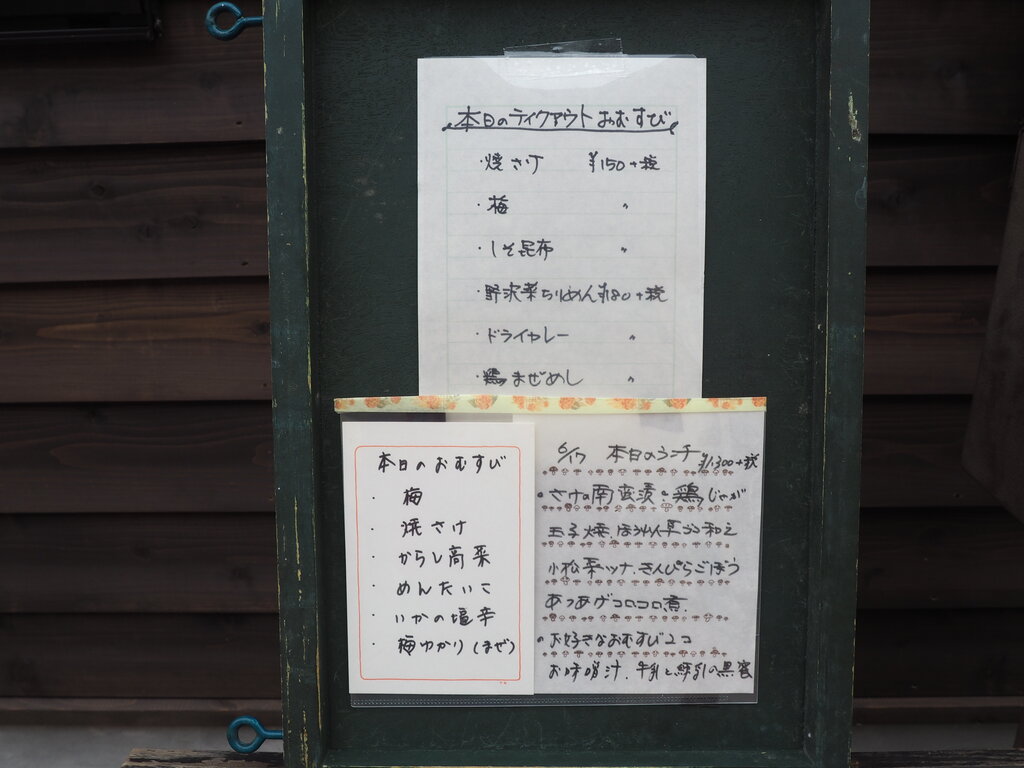 本日のテイクアウトおむすび
・焼さけ ¥150+税
・梅 〃
・しそ昆布 〃
・野沢菜ちりめん ¥180+税
・ドライカレー 〃
・鶏まぜめし 〃
本日のおむすび
・梅
・焼さけ
・からし高菜
・めんたいこ
・いかの塩辛
・梅ゆかり(まぜ)
6/17 本日のランチ ¥1,300+税
・さけの南蛮漬・鶏じゃが
玉子焼.ほうれん草ゴマ和え
小松菜ツナ.きんぴらごぼう
あつあげコロコロ煮
・お好きなおむすび2コ
お味噌汁.牛乳と練乳の黒蜜